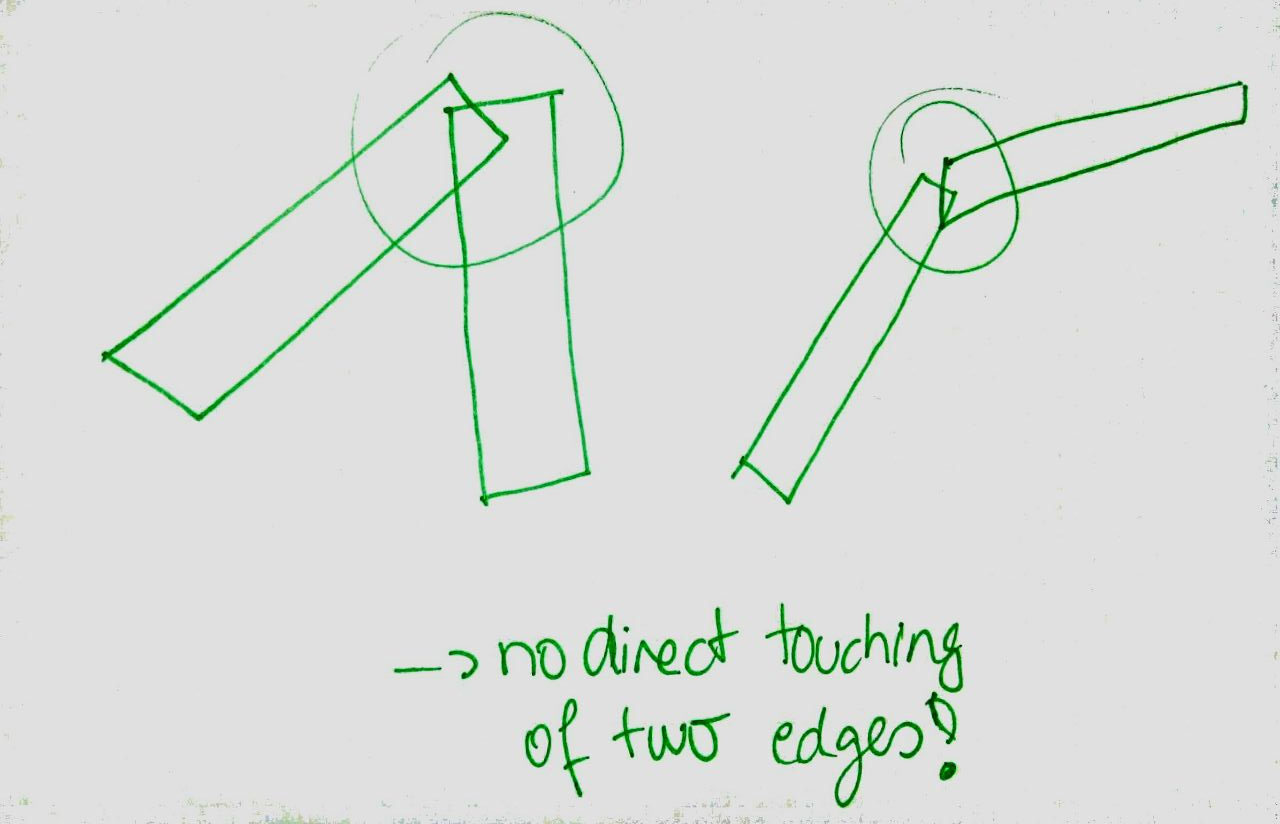 —> no direct touching
of two edges!